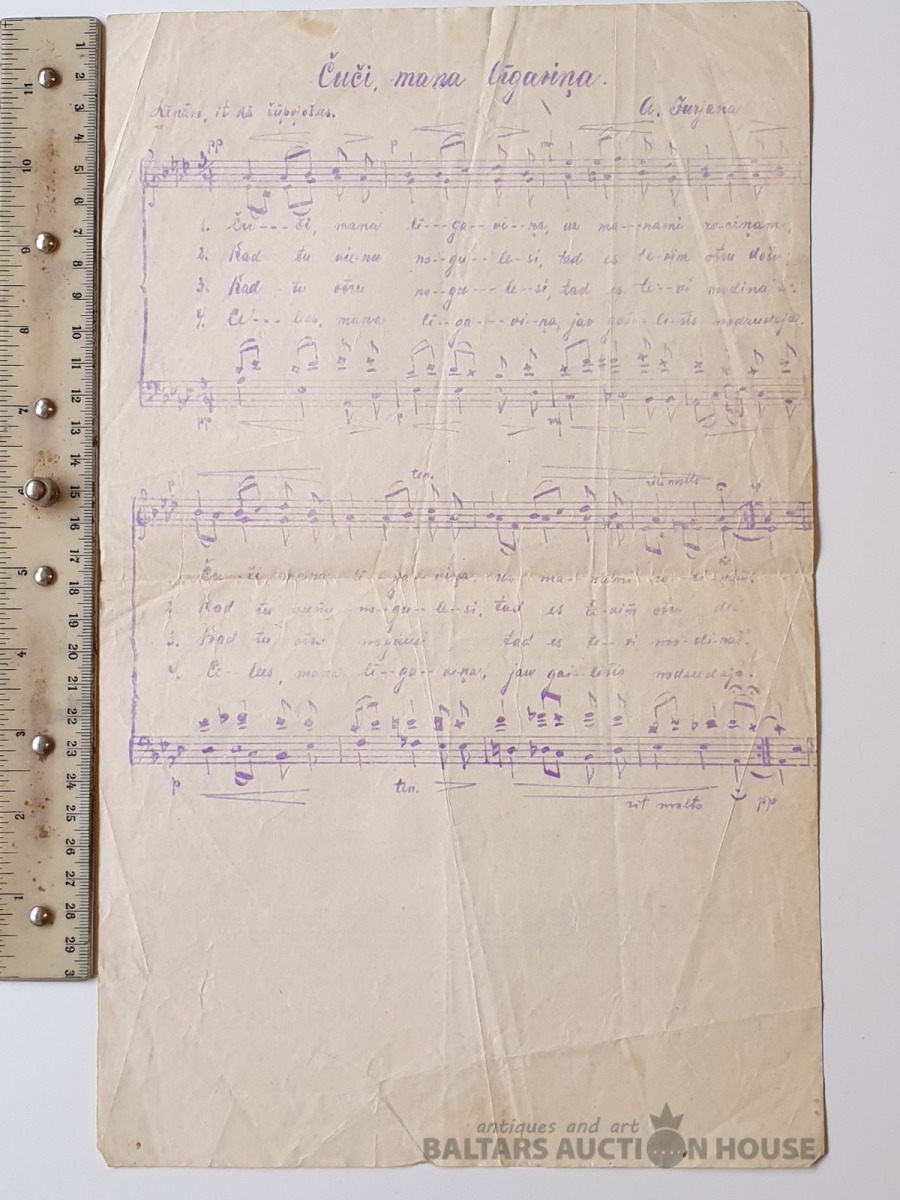 Čuči, mana līgaviņa.
Lēnām, it kā šūpojoties. A. Jurjana
pp p mf
1. Ču---či, mana lī---ga--vi--ņa, uz ma---nāmi rociņām.
2. Kad tu vienu no--gu--lē-si, tad es tevim otru došu
3. Kad tu otru no-gu---lē-si, tad es te--vi modināš
4. Ce---lies, mana lī--ga---vi-ņa, jau gai--lītis nodziedāja.
pp p mf
p ten. rit molto
Ču--či mana lī--ga--viņa, uz ma--nāmi ro-ci-ņām.
2. Kad tu vienu no-gu--lē-si, tad es te-vim otru do
3. Kad tu otru nogulēsi tad es te--vi mo-di-nāš.
4. Ce--lies, mana lī--ga--viņa, jau gai--lītis nodziedāja.
p ten. rit molto pp
antiques and art
BALTARS AUCTION HOUSE
11 10 9 8 7 6 5 4 3 2 1
1 2 3 4 5 6 7 8 9 10 11 12 13 14 15 16 17 18 19 20 21 22 23 24 25 26 27 28 29 3